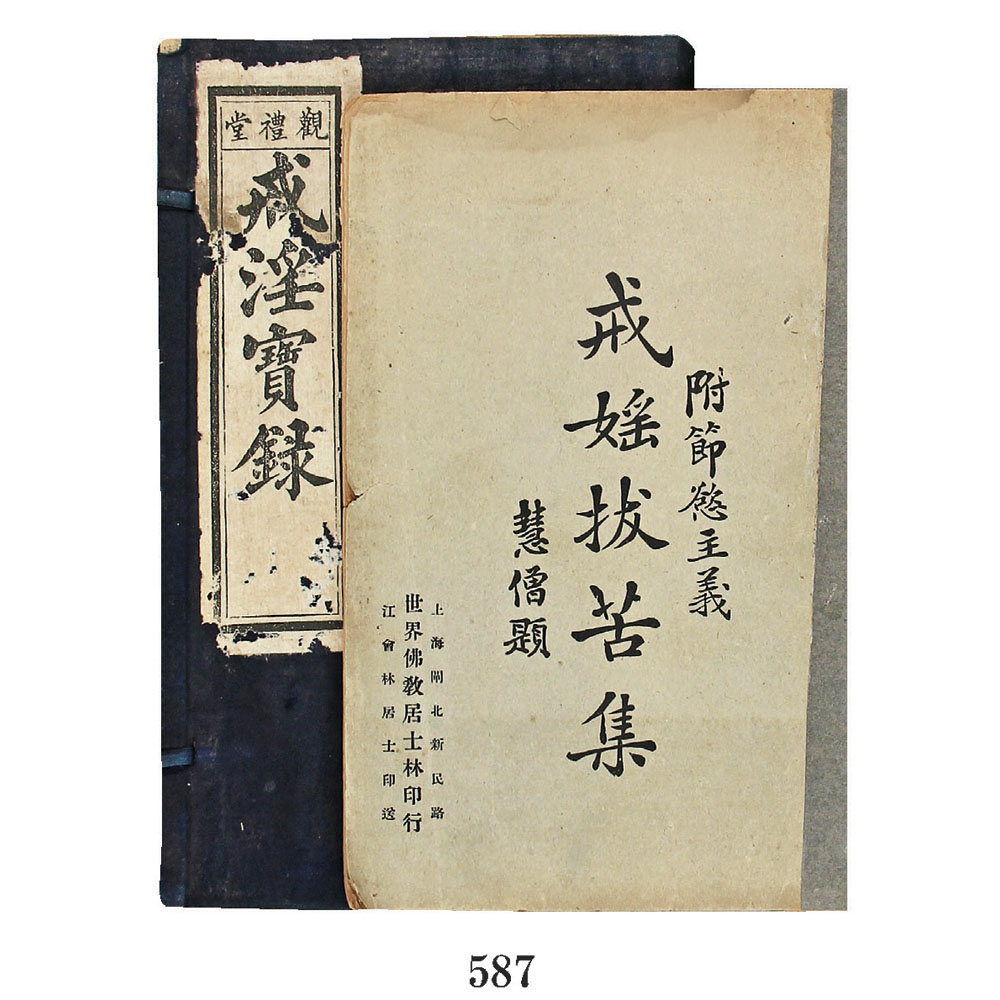 觀禮堂
戒淫寶録
附節慾主義
戒婬拔苦集
慧僧題
上海閘北新民路
世界佛教居士林印行
江會林居士印送
587